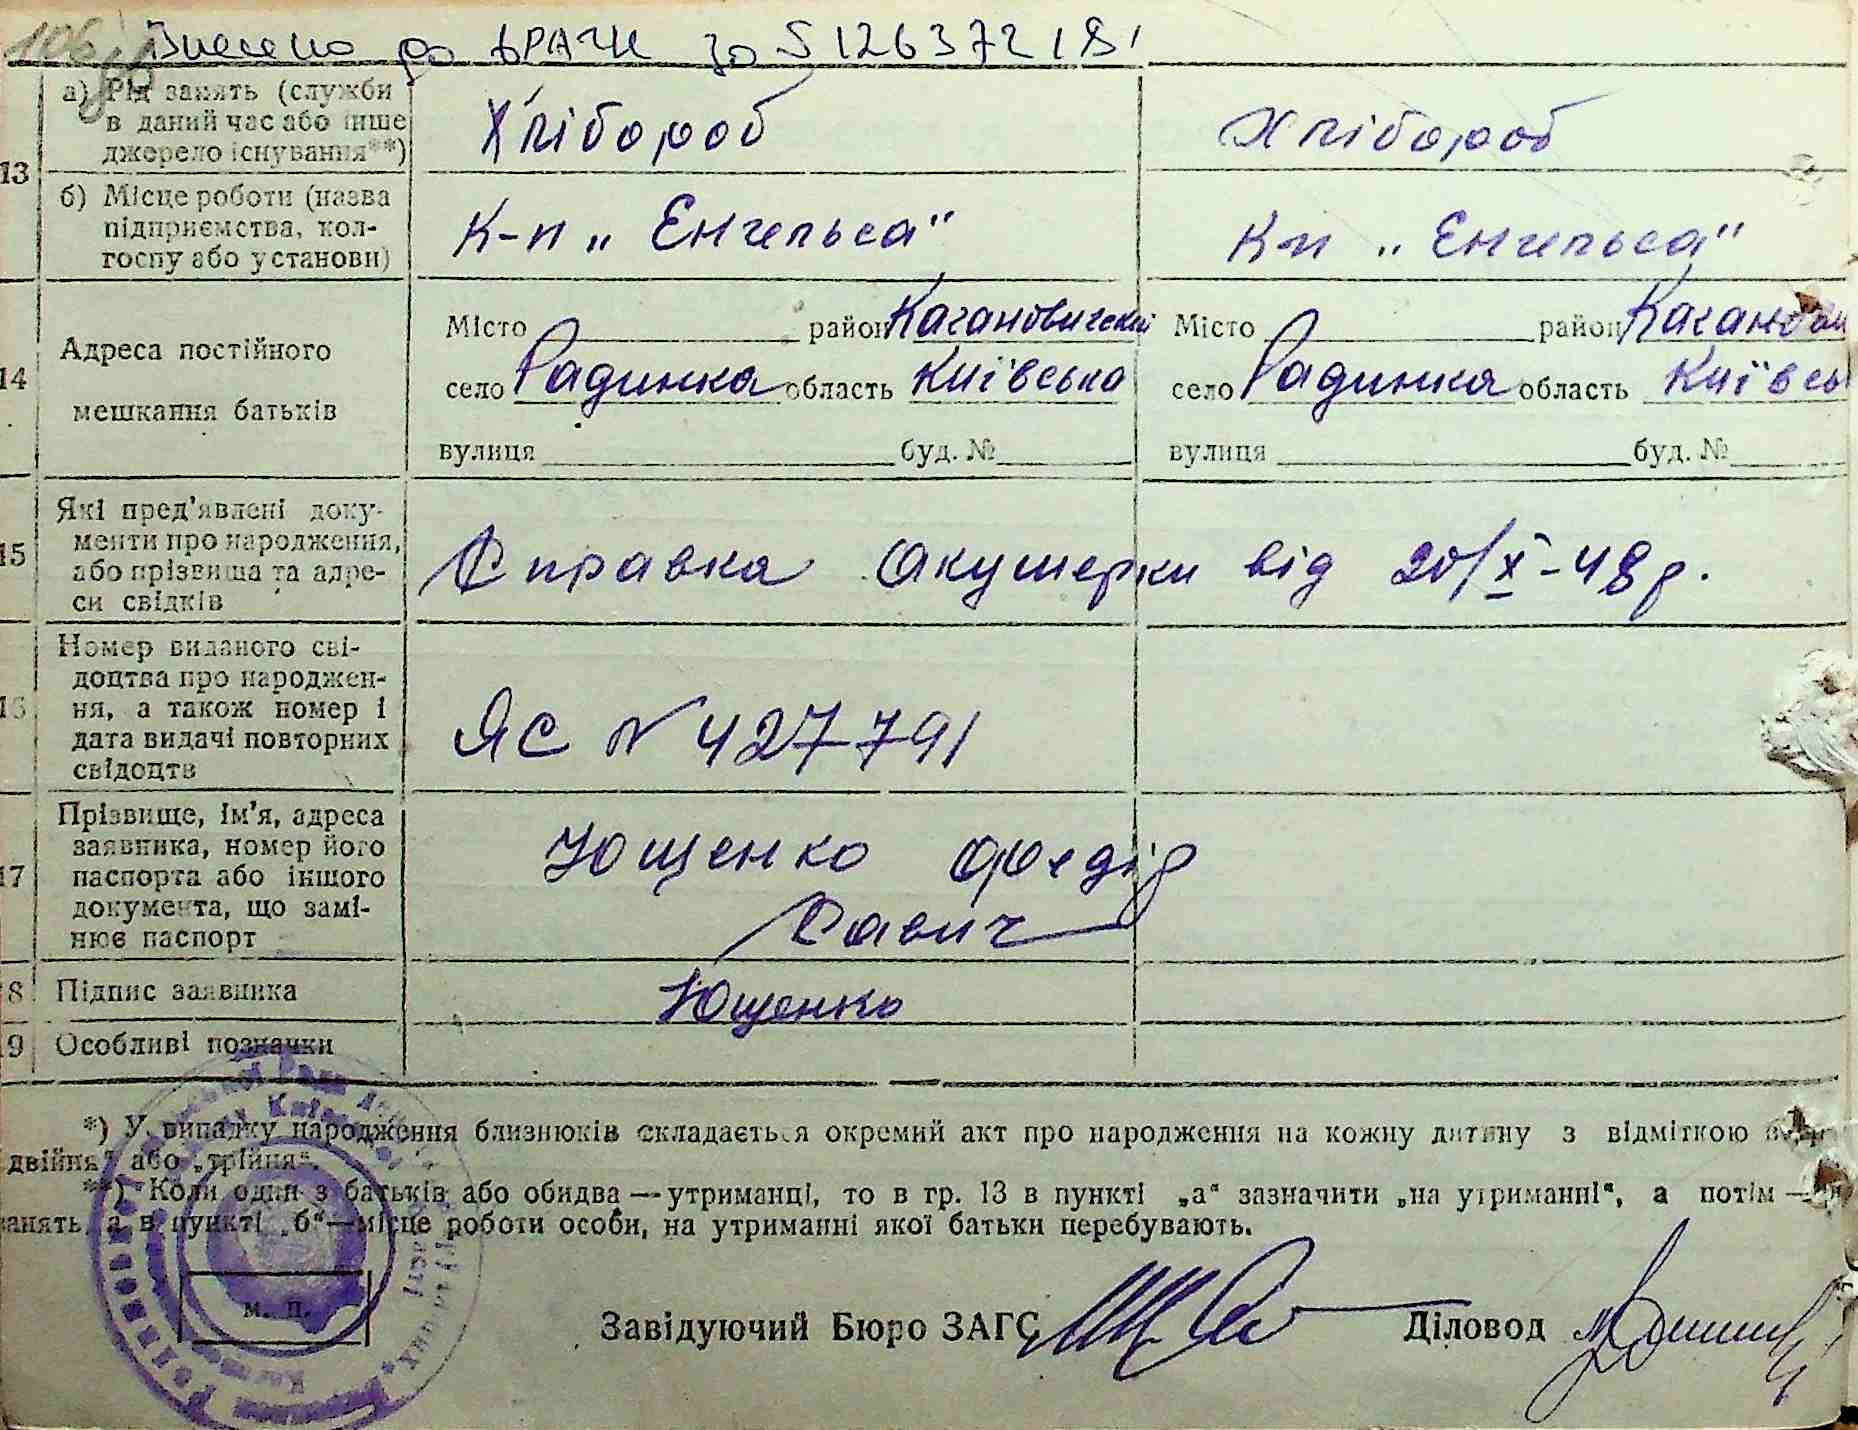 106 Внесено до ДРАЦС за § 126372181
13
а) Рід занять (служби в даний час або інше джерело існування**)
Хлібороб Хлібороб
б) Місце роботи (назва підприємства, колгоспу або установи)
К-п „Енгельса" К-п „Енгельса"
14
Адреса постійного
мешкання батьків
Місто район Кагановичский Місто район Каганови
село Радинка область Київська село Радинка область Київсь
вулиця буд. № вулиця буд. №
15
Які пред'явлені документи про народження, або прізвища та адреси свідків
Справка Акушерки від 20/X-48 р.
16
Номер виданого свідоцтва про народження, а також номер і дата видачі повторних свідоцтв
ЯС № 427791
17
Прізвище, ім'я, адреса заявника, номер його паспорта або іншого документа, що замінює паспорт
Ющенко Федір
Савич
8 Підпис заявника Ющенко
9 Особливі позначки
*) У випадку народження близнюків складається окремий акт про народження на кожну дитину з відміткою
двійня" або „трійня".
**) Коли один з батьків або обидва — утриманці, то в гр. 13 в пункті „а" зазначити „на утриманні", а потім —
занять, а в пункті „б"—місце роботи особи, на утриманні якої батьки перебувають.
м. п.
Завідуючий Бюро ЗАГС Діловод